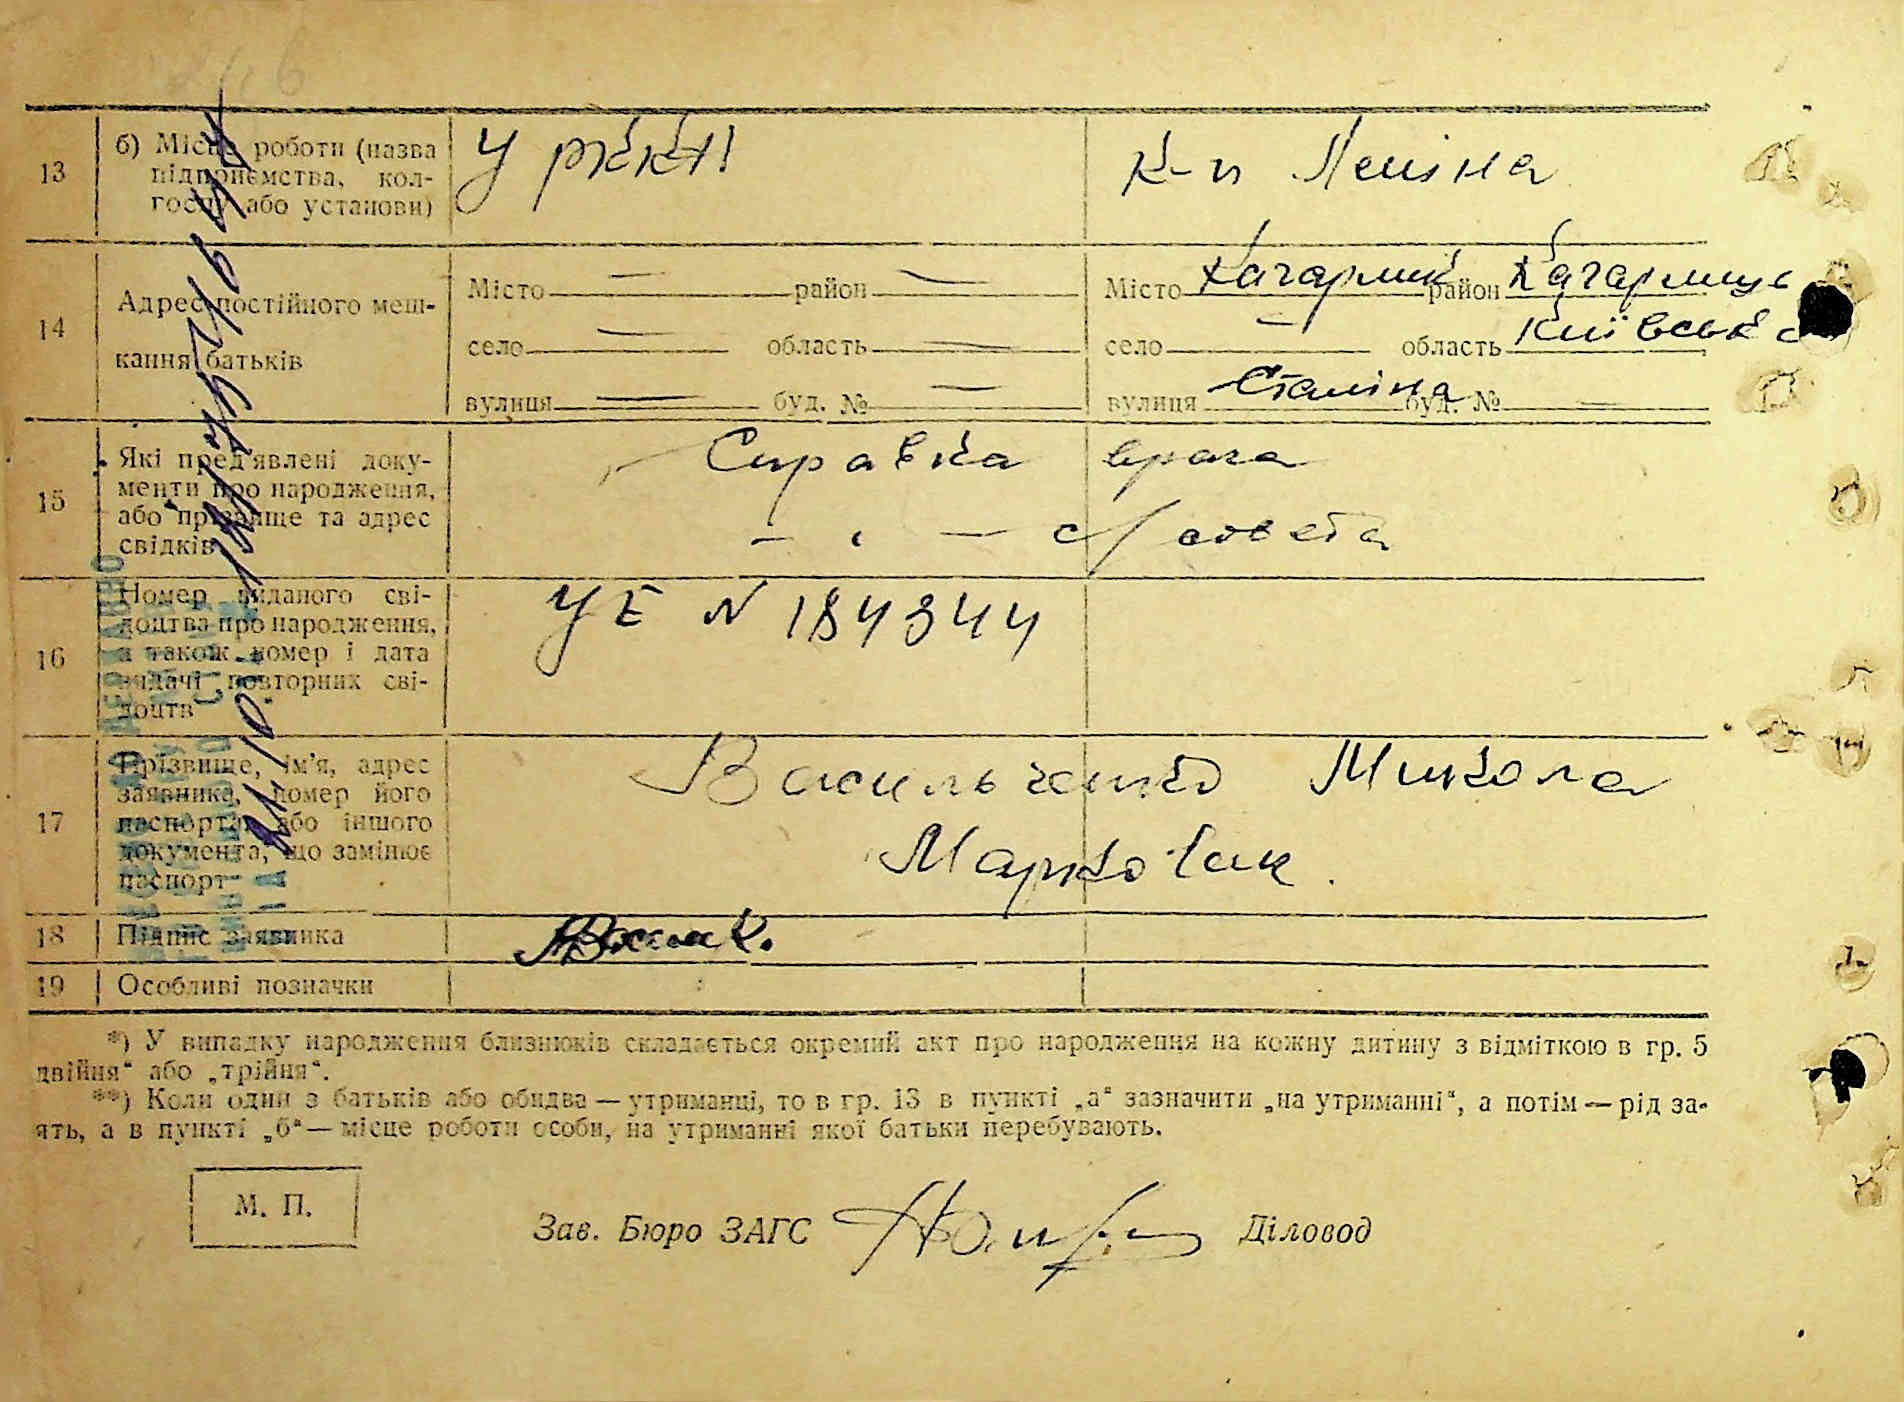 13 б) Місце роботи (назва підприємства, колгоспу або установи) У РККА к-п Леніна
14 Адрес постійного мешкання батьків
Місто — район — Місто Кагарлик район Кагарлиць
село — область — село — область Київська
вулиця — буд. № — вулиця Сталіна буд. № —
15 Які пред'явлені документи про народження, або прізвище та адрес свідків
Справка врача
— " — с/совета
16 Номер виданого свідоцтва про народження, а також номер і дата видачі повторних свідоцтв
УЕ N 184344
17 Прізвище, ім'я, адрес заявника, номер його паспорта або іншого документа, що замінює паспорт
Васильченко Микола
Маркович.
18 Підпис заявника
19 Особливі позначки
*) У випадку народження близнюків складається окремий акт про народження на кожну дитину з відміткою в гр. 5
двійня“ або „трійня“.
**) Коли один з батьків або обидва — утриманці, то в гр. 13 в пункті „а“ зазначити „на утриманні“, а потім — рід за-
ять, а в пункті „б“ — місце роботи особи, на утриманні якої батьки перебувають.
М. П.
Зав. Бюро ЗАГС Діловод